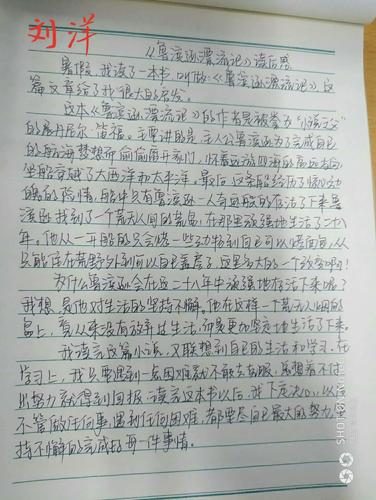 刘洋
《鲁滨逊漂流记》读后感
暑假,我读了一本书,叫做《鲁滨逊漂流记》,这
篇文章给了我很大的启发。
这本《鲁滨逊漂流记》的作者是被誉为“小说之父”
的丹尼尔·笛福。主要讲的是:主人公鲁滨逊为了完成自己
的航海梦想而偷偷离开家门,怀着远游四海的高远志向,
坐船穿越了大西洋和太平洋。最后,这条船经历了惊心动
魄的险情,船中只有鲁滨逊一人存活了下来,鲁
滨逊找到了一个荒无人烟的荒岛,在那里顽强地生活了二十八
年。他从一开始的只会烧一些动物到自己可以烤面包,从
只能住在荒野外到可以自己盖房子,这是多大的一个改变啊!
为什么鲁滨逊会在这二十八年中顽强地存活下来呢?
我想,是他对生活的坚持不懈。他在这样一个荒无人烟的
岛上,看从来没有放弃过生活,而是更加坚定地生活了下来。
我读完这篇小说,又联想到自己的生活和学习,在
学习上,我只要遇到一点困难就不敢去克服,总想着不付
出努力就得到回报。读完这本书以后,我下定决心,以后
不管做任何事,遇到任何困难,都要尽自己最大的努力,坚
持不懈的完成好每一件事情。
SHOT ON